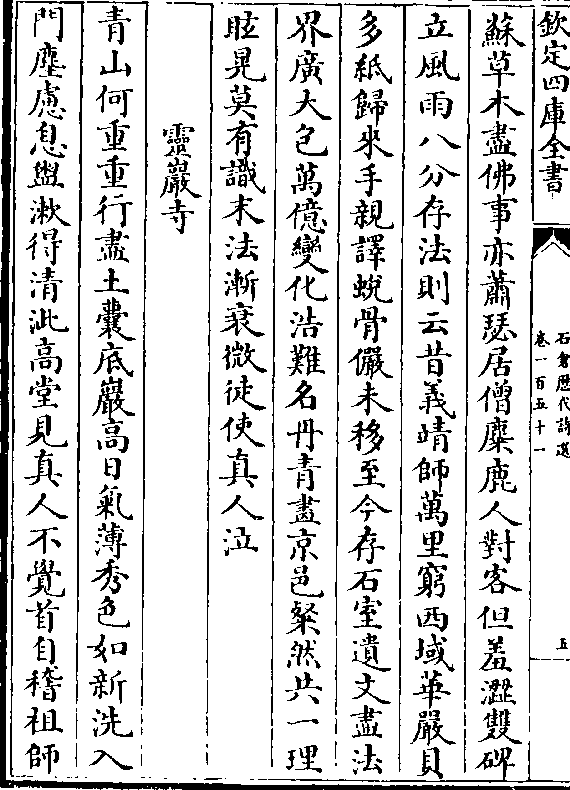 欽定四庫全書
石倉歴代詩選
卷一百五十一
五
蘇草木盡佛事亦蕭瑟居僧麋鹿人對客但羞澀雙碑
立風雨八分存法則云昔義靖師萬里窮西域華嚴貝
多紙歸來手親譯蛻骨儼未移至今存石室遺文盡法
界廣大包萬億變化浩難名丹青畫京邑粲然共一理
眩晃莫有識末法漸衰微徒使真人泣
靈巖寺
青山何重重行盡土囊底巖高日氣薄秀色如新洗入
門塵慮息盥漱得清泚高堂見真人不覺首自稽祖師